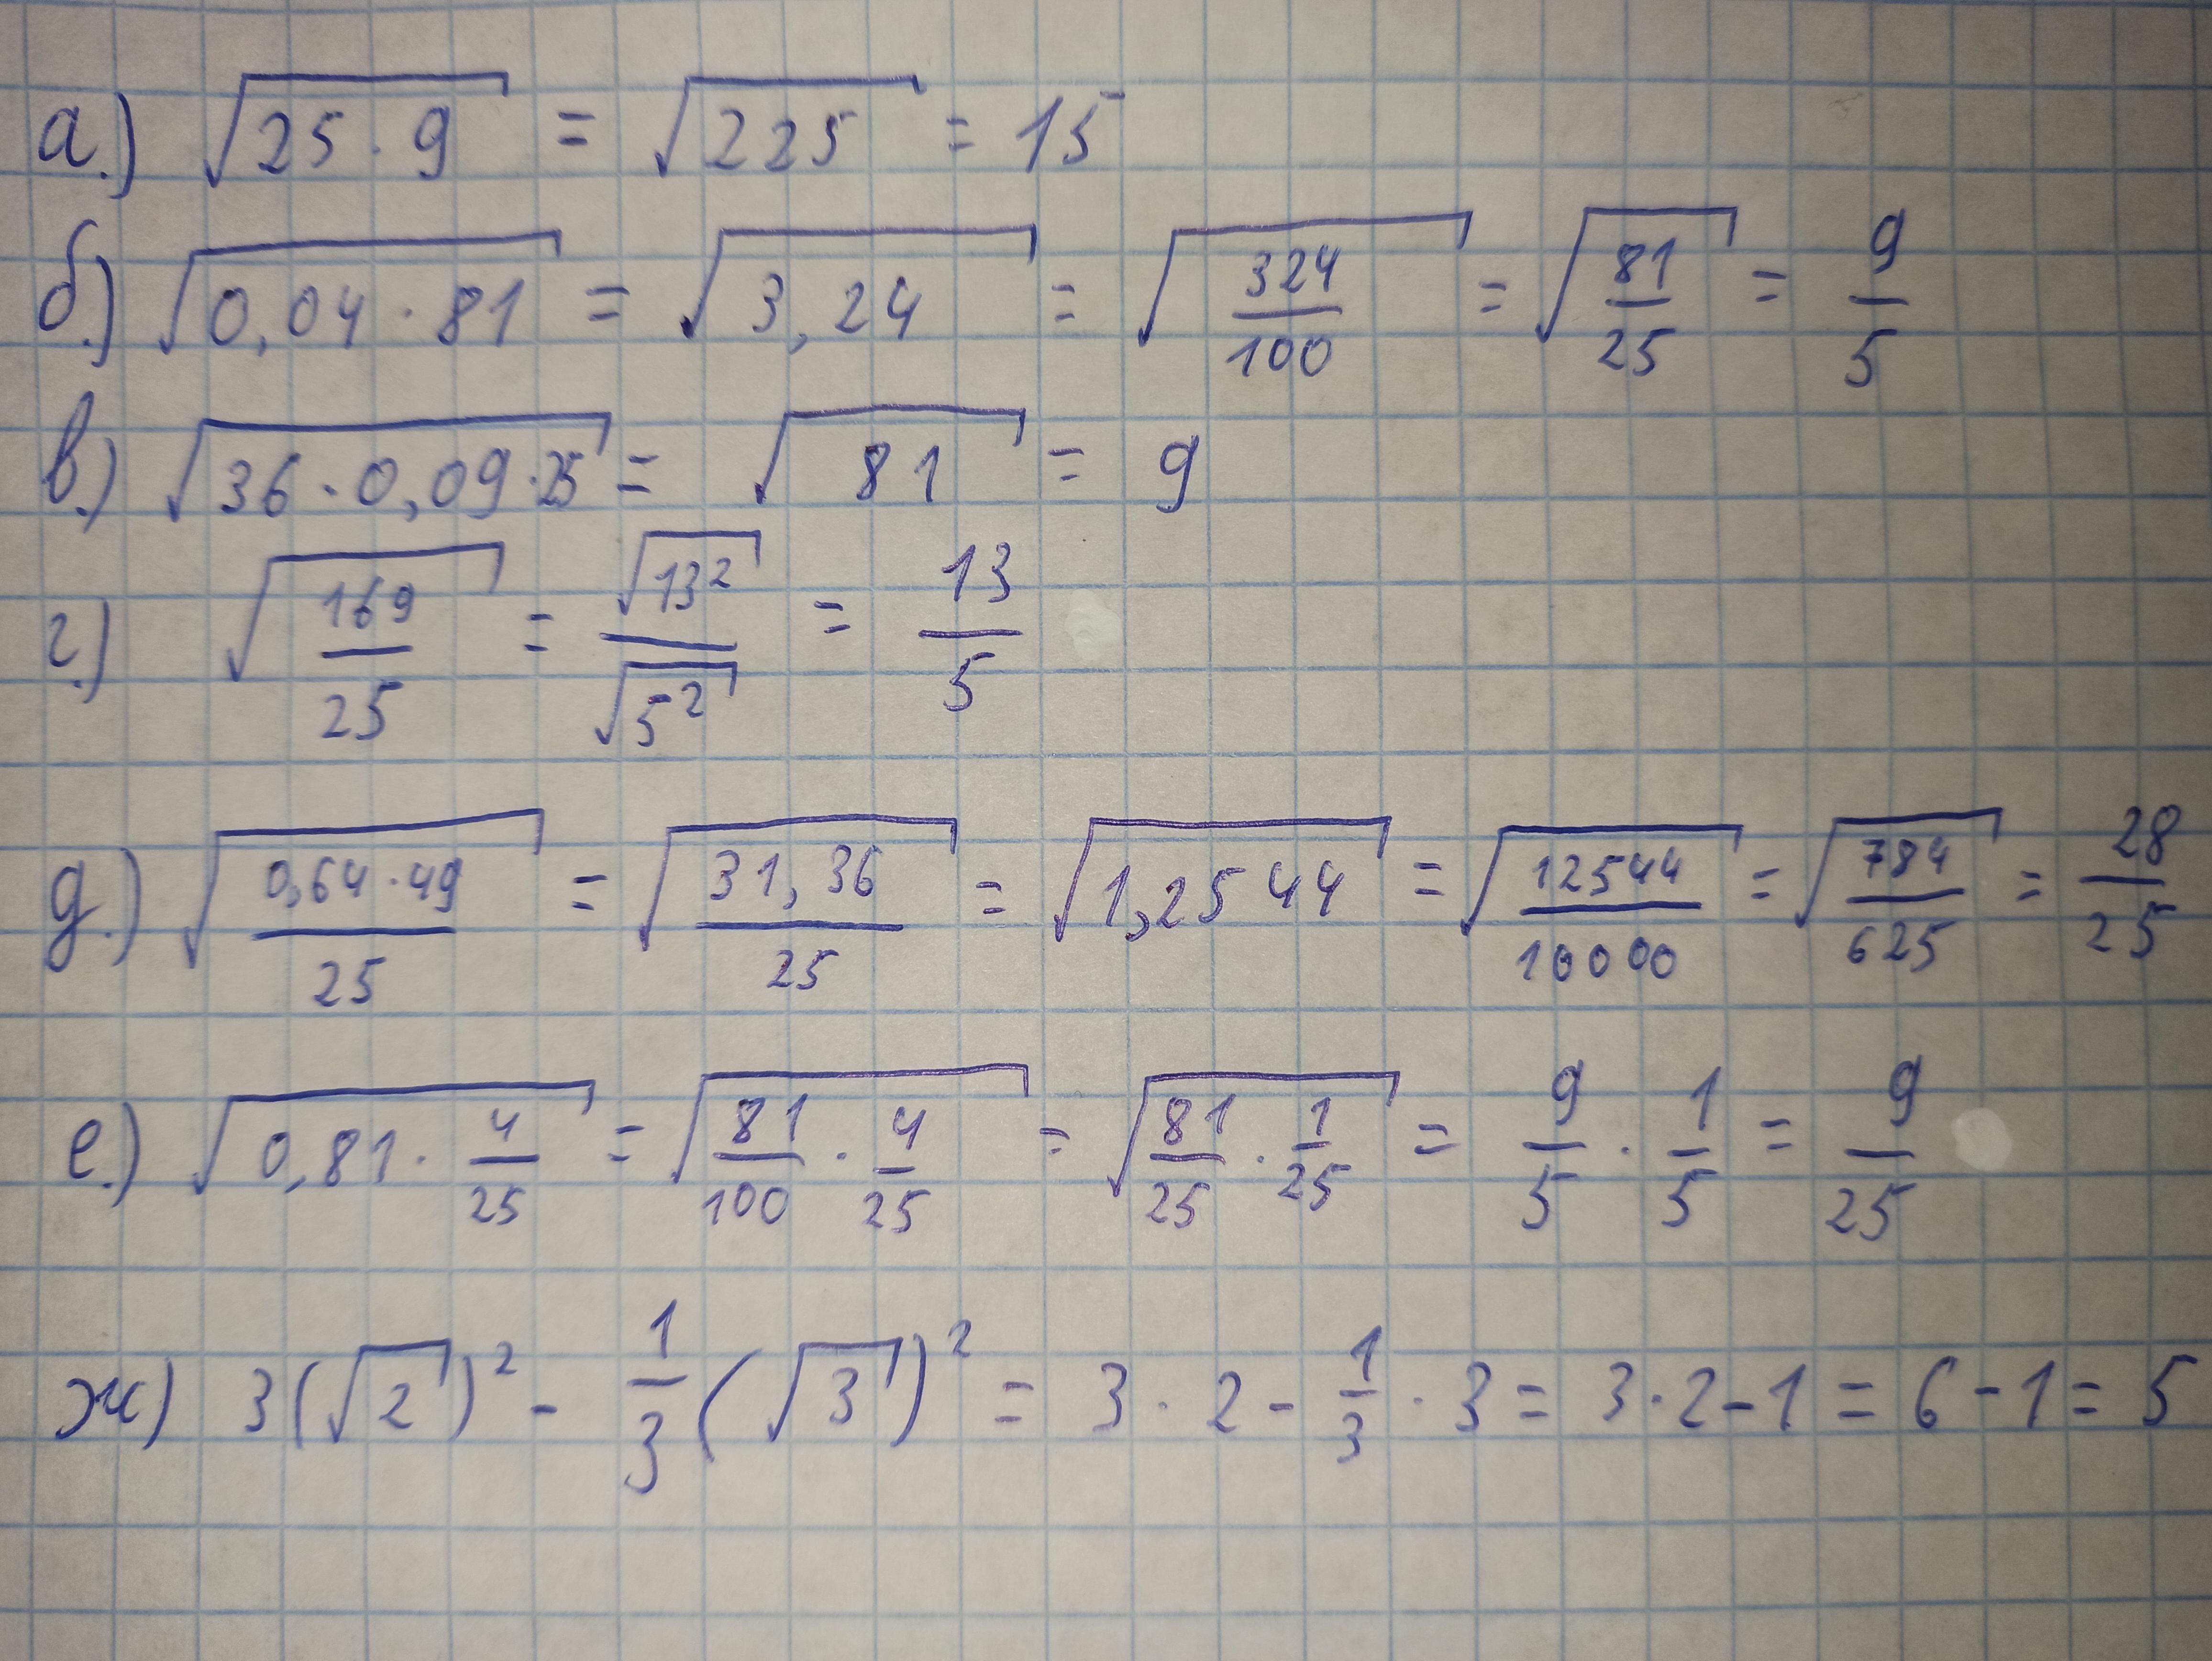 а.) √(25 · 9) = √225 = 15
б.) √(0,04 · 81) = √3,24 = √(324/100) = √(81/25) = 9/5
в.) √(36 · 0,09 · 25) = √81 = 9
г.) √(169/25) = √13²/√5² = 13/5
д.) √(0,64 · 49/25) = √(31,36/25) = √1,2544 = √(12544/10000) = √(784/625) = 28/25
е.) √(0,81 · 4/25) = √(81/100 · 4/25) = √(81/25 · 1/25) = 9/5 · 1/5 = 9/25
ж) 3(√2)² - 1/3(√3)² = 3 · 2 - 1/3 · 3 = 3 · 2 - 1 = 6 - 1 = 5